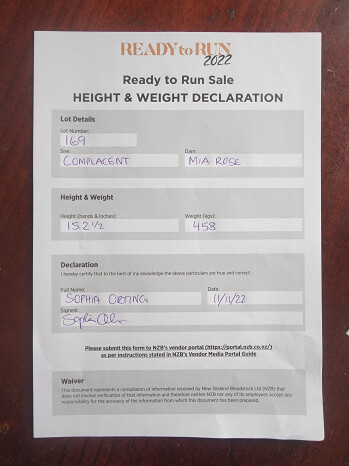 READY to RUN
2022
Ready to Run Sale
HEIGHT & WEIGHT DECLARATION
Lot Details
Lot Number:
169
Sire: Dam:
COMPLACENT MIA ROSE
Height & Weight
Height (hands & inches): Weight (kgs):
15.2 1/2 458
Declaration
I hereby certify that to the best of my knowledge the above particulars are true and correct.
Full Name: Date:
SOPHIA ORTING 11/11/22
Signed:
Please submit this form to NZB's vendor portal (https://portal.nzb.co.nz/)
as per instructions stated in NZB's Vendor Media Portal Guide
Waiver
This document represents a compilation of information received by New Zealand Bloodstock Ltd (NZB) that
does not involve verification of that information and therefore neither NZB nor any of its employees accept any
responsibility for the accuracy of the information from which this document has been prepared.